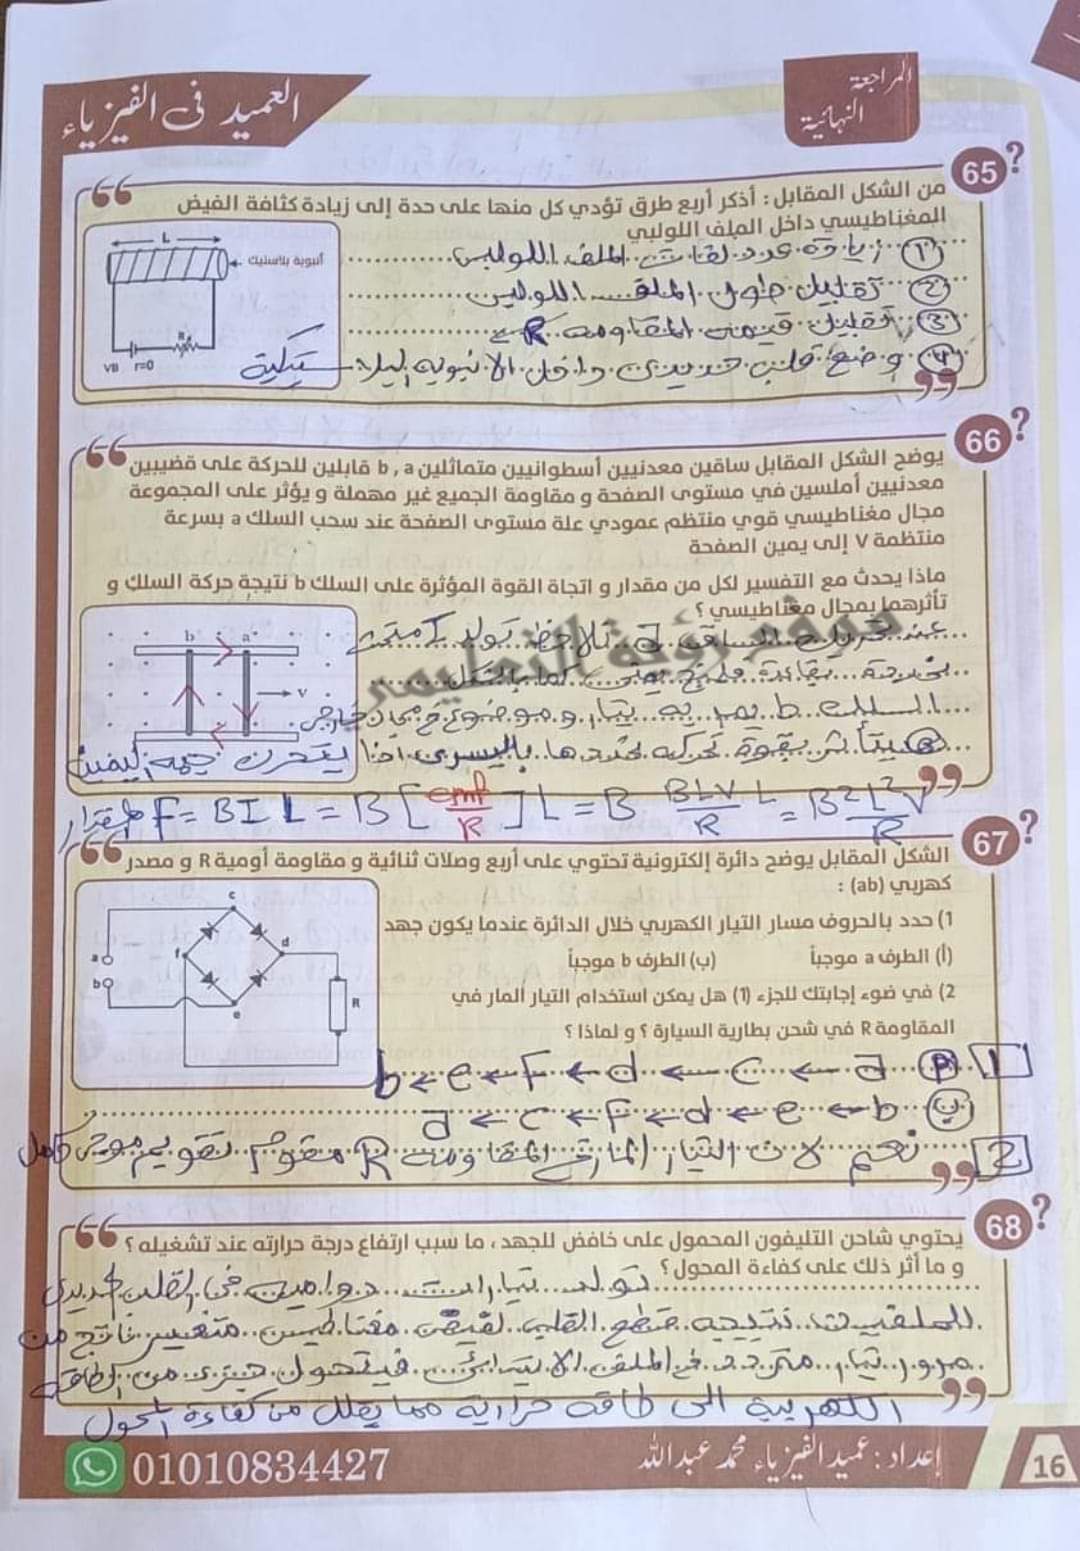 العميد في الفيزياء
المراجعة
النهائية
65
من الشكل المقابل : أذكر أربع طرق تؤدي كل منها على حدة إلى زيادة كثافة الفيض
المغناطيسي داخل الملف اللولبي
L
أنبوبة بلاستيك
R
VB r=0
① زيادة عدد لفات الملف اللولبي
② تقليل طول الملف اللولبي
③ تقليل قيمة المقاومة R
④ وضع قلب حديدي داخل الانبوبه البلاستيكية
66
يوضح الشكل المقابل ساقين معدنيين أسطوانيين متماثلين b , a قابلين للحركة على قضيبين
معدنيين أملسين في مستوى الصفحة و مقاومة الجميع غير مهملة و يؤثر على المجموعة
مجال مغناطيسي قوي منتظم عمودي علة مستوى الصفحة عند سحب السلك a بسرعة
منتظمة V إلى يمين الصفحة
ماذا يحدث مع التفسير لكل من مقدار و اتجاة القوة المؤثرة على السلك b نتيجة حركة السلك و
تأثرهما بمجال مغناطيسي ؟
b a
v
موقع رؤية التعليمي
عند تحريك الساق a نلاحظ تولد
السلك b يمر به تيار وموضوع في مجال خارجي
سيتأثر بقوة تحركه نحددها باليسرى اذا يتحرك جهه اليمين
مقدار F = BIL = B [emf/R] L = B BLV/R L = B²L²V/R
67
الشكل المقابل يوضح دائرة إلكترونية تحتوي على أربع وصلات ثنائية و مقاومة أومية R و مصدر
كهربي (ab) :
1) حدد بالحروف مسار التيار الكهربي خلال الدائرة عندما يكون جهد
(أ) الطرف a موجباً (ب) الطرف b موجباً
2) في ضوء إجابتك للجزء (1) هل يمكن استخدام التيار المار في
المقاومة R في شحن بطارية السيارة ؟ و لماذا ؟
c
a
f
d
b
e
R
1 (أ) a → c → d → F → e → b
(ب) b → e → d → F → c → a
2 نعم لان التيار المار في المقاومه R مقوم تقويم موجى كامل
68
يحتوي شاحن التليفون المحمول على خافض للجهد ، ما سبب ارتفاع درجة حرارته عند تشغيله ؟
و ما أثر ذلك على كفاءة المحول ؟
تولد تيارات دوامية في القلب الحديدي
للملفين نتيجه قطع القلب لفيض مغناطيسى متغير ناتج من
مرور تيار متردد في الملف الابتدائى فيتحول جزء من الطاقه
الكهربية الى طاقه حرارية مما يقلل من كفاءة المحول
01010834427
إعداد : عميد الفيزياء محمد عبدالله
16